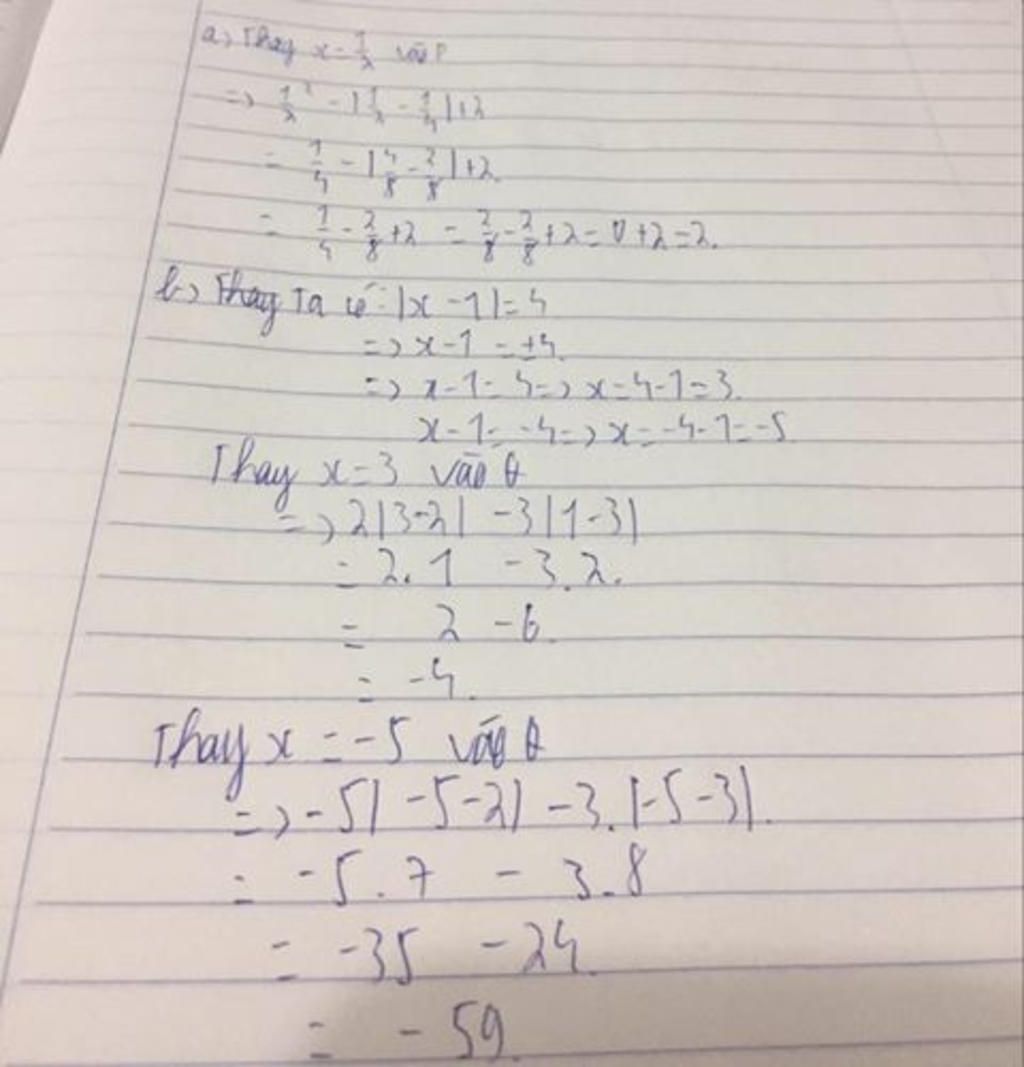 a) Thay x = 1/2 vào P
=> 1/2² - |1/2 - 1/4| + 2
= 1/4 - |4/8 - 2/8| + 2
= 1/4 - 2/8 + 2 = 2/8 - 2/8 + 2 = 0 + 2 = 2.
b) Thay Ta có: |x - 1| = 4
=> x - 1 = ±4.
=> x - 1 = 4 => x = 4 - 1 = 3.
x - 1 = -4 => x = -4 - 1 = -5
Thay x = 3 vào Q
=> 2|3-2| - 3|1-3|
= 2.1 - 3.2.
= 2 - 6.
= -4.
Thay x = -5 vào Q
=> -5|-5-2| - 3.|-5-3|.
= -5.7 - 3.8
= -35 - 24.
= -59.